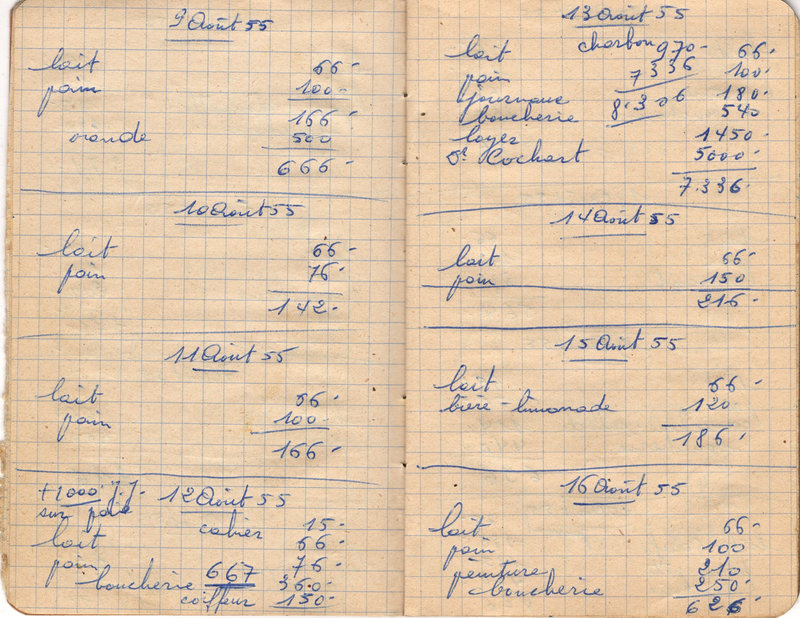 9 Août 55
lait 66-
pain 100-
166
viande 500
666-
10 Août 55
lait 66-
pain 76-
142-
11 Août 55
lait 66-
pain 100-
166-
+1000 J.J. 12 Août 55
sur paie cahier 15-
lait 66-
pain 76-
boucherie 667 360-
coiffeur 150-
13 Août 55
charbon 970-
lait 66-
pain 7336 100-
journaux 8.306 180-
boucherie 540
loyer 1450-
Dr Cochart 5000-
7.336-
14 Août 55
lait 66-
pain 150
216-
15 Août 55
lait 66-
bière-limonade 120
186-
16 Août 55
lait 66-
pain 100
peinture 210
boucherie 250-
626-